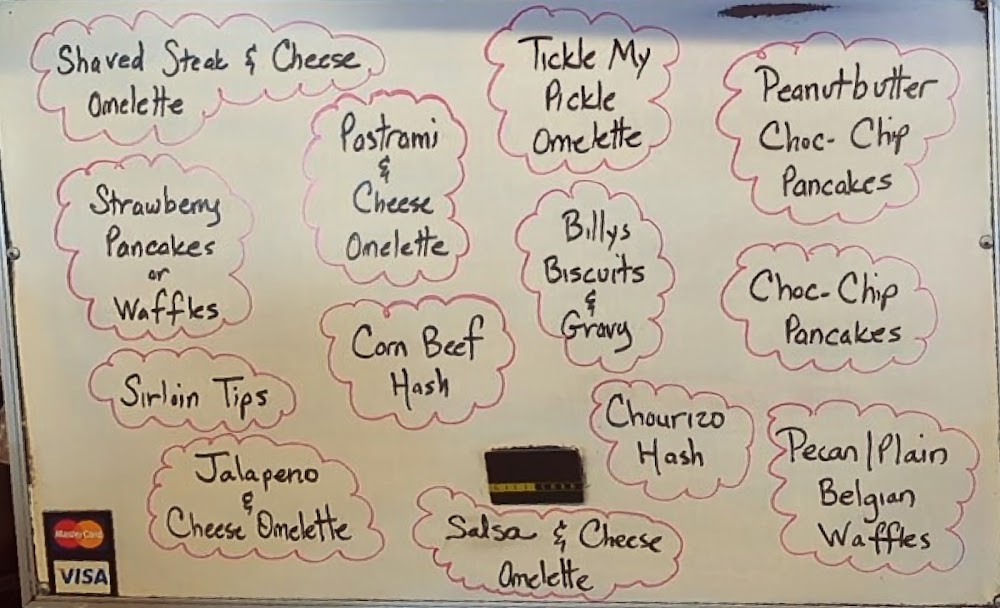 Shaved Steak & Cheese
Omelette
Pastrami
&
Cheese
Omelette
Tickle My
Pickle
Omelette
Peanutbutter
Choc-Chip
Pancakes
Strawberry
Pancakes
or
Waffles
Billys
Biscuits
&
Gravy
Choc-Chip
Pancakes
Corn Beef
Hash
Sirloin Tips
Chourizo
Hash
Pecan/Plain
Belgian
Waffles
Jalapeno
&
Cheese Omelette
Salsa & Cheese
Omelette
MasterCard
VISA